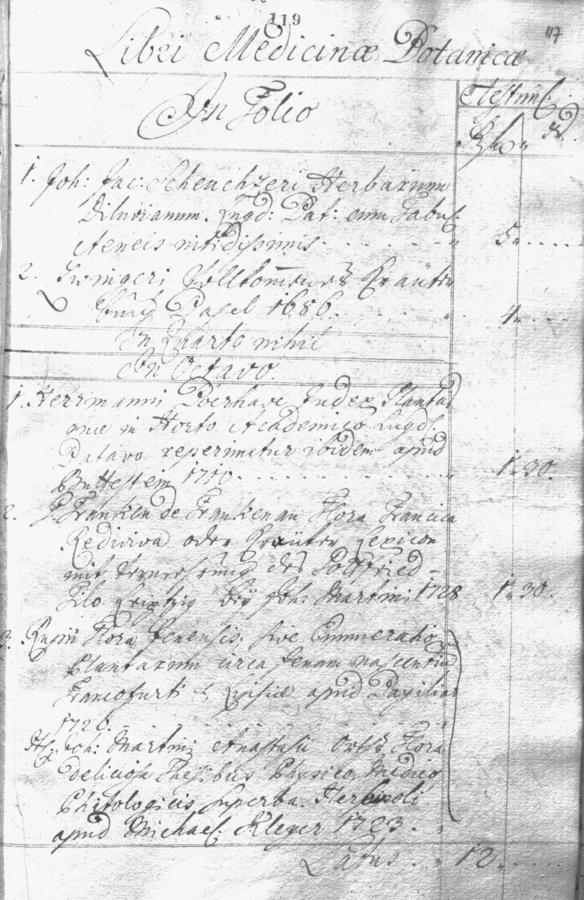 119
117
Libri Medicinæ Botanicæ
In Folio
Æstim:
fl. xr
1. Joh: Jac: Scheuchzeri Herbarium
Diluvianum. Lugd: Bat: cum Tabul:
Aeneis nitidissimis. 5
2. Zwingeri Vollkommenes Kräuter
Buch Basel 1686. 4
In Quarto nihil
In Octavo.
1. Herrmanni Boerhave Index Plantar
quæ in Horto Academico Lugd:
Batavo reperiuntur ibidem apud
1710 1 30.
2. Franken de Frankenau Flora Francica
Rediviva oder Kräuter Lexicon
mit des Gottfried
Leipzig bey Joh: Martini 1728 1 30.
3. Rupii Flora Jenensis. sive Enumeratio
Plantarum circa Jenam nascentium
Francofurti & Lipsiæ apud
1726.
Joh: Martini Anastasii Flora
deliciosa Thesibus Physico Medico
Phitologicis superba. Herbipoli
apud Michael: Kleyer 1723.
Latus 12